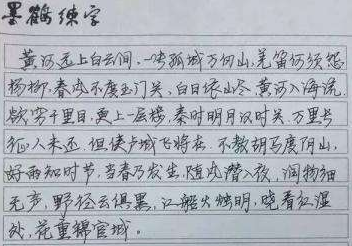 墨鹤练字
黄河远上白云间,一片孤城万仞山,羌笛何须怨
杨柳,春风不度玉门关,白日依山尽,黄河入海流,
欲穷千里目,更上一层楼,秦时明月汉时关,万里长
征人未还,但使卢城飞将在,不教胡马度阴山,
好雨知时节,当春乃发生,随风潜入夜,润物细
无声,野径云俱黑,江船火烛明,晓看红湿
处,花重锦官城。